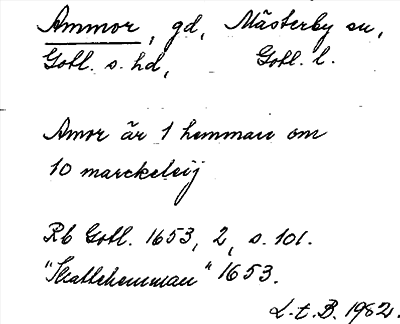 Ammor, gd, Mästerby sn,
Gotl. s. hd, Gotl. l.
Amor är 1 hemman om
10 marckeleij
Rb Gotl. 1653, 2, s. 101.
"Skattehemman" 1653.
L.t.B. 1982.